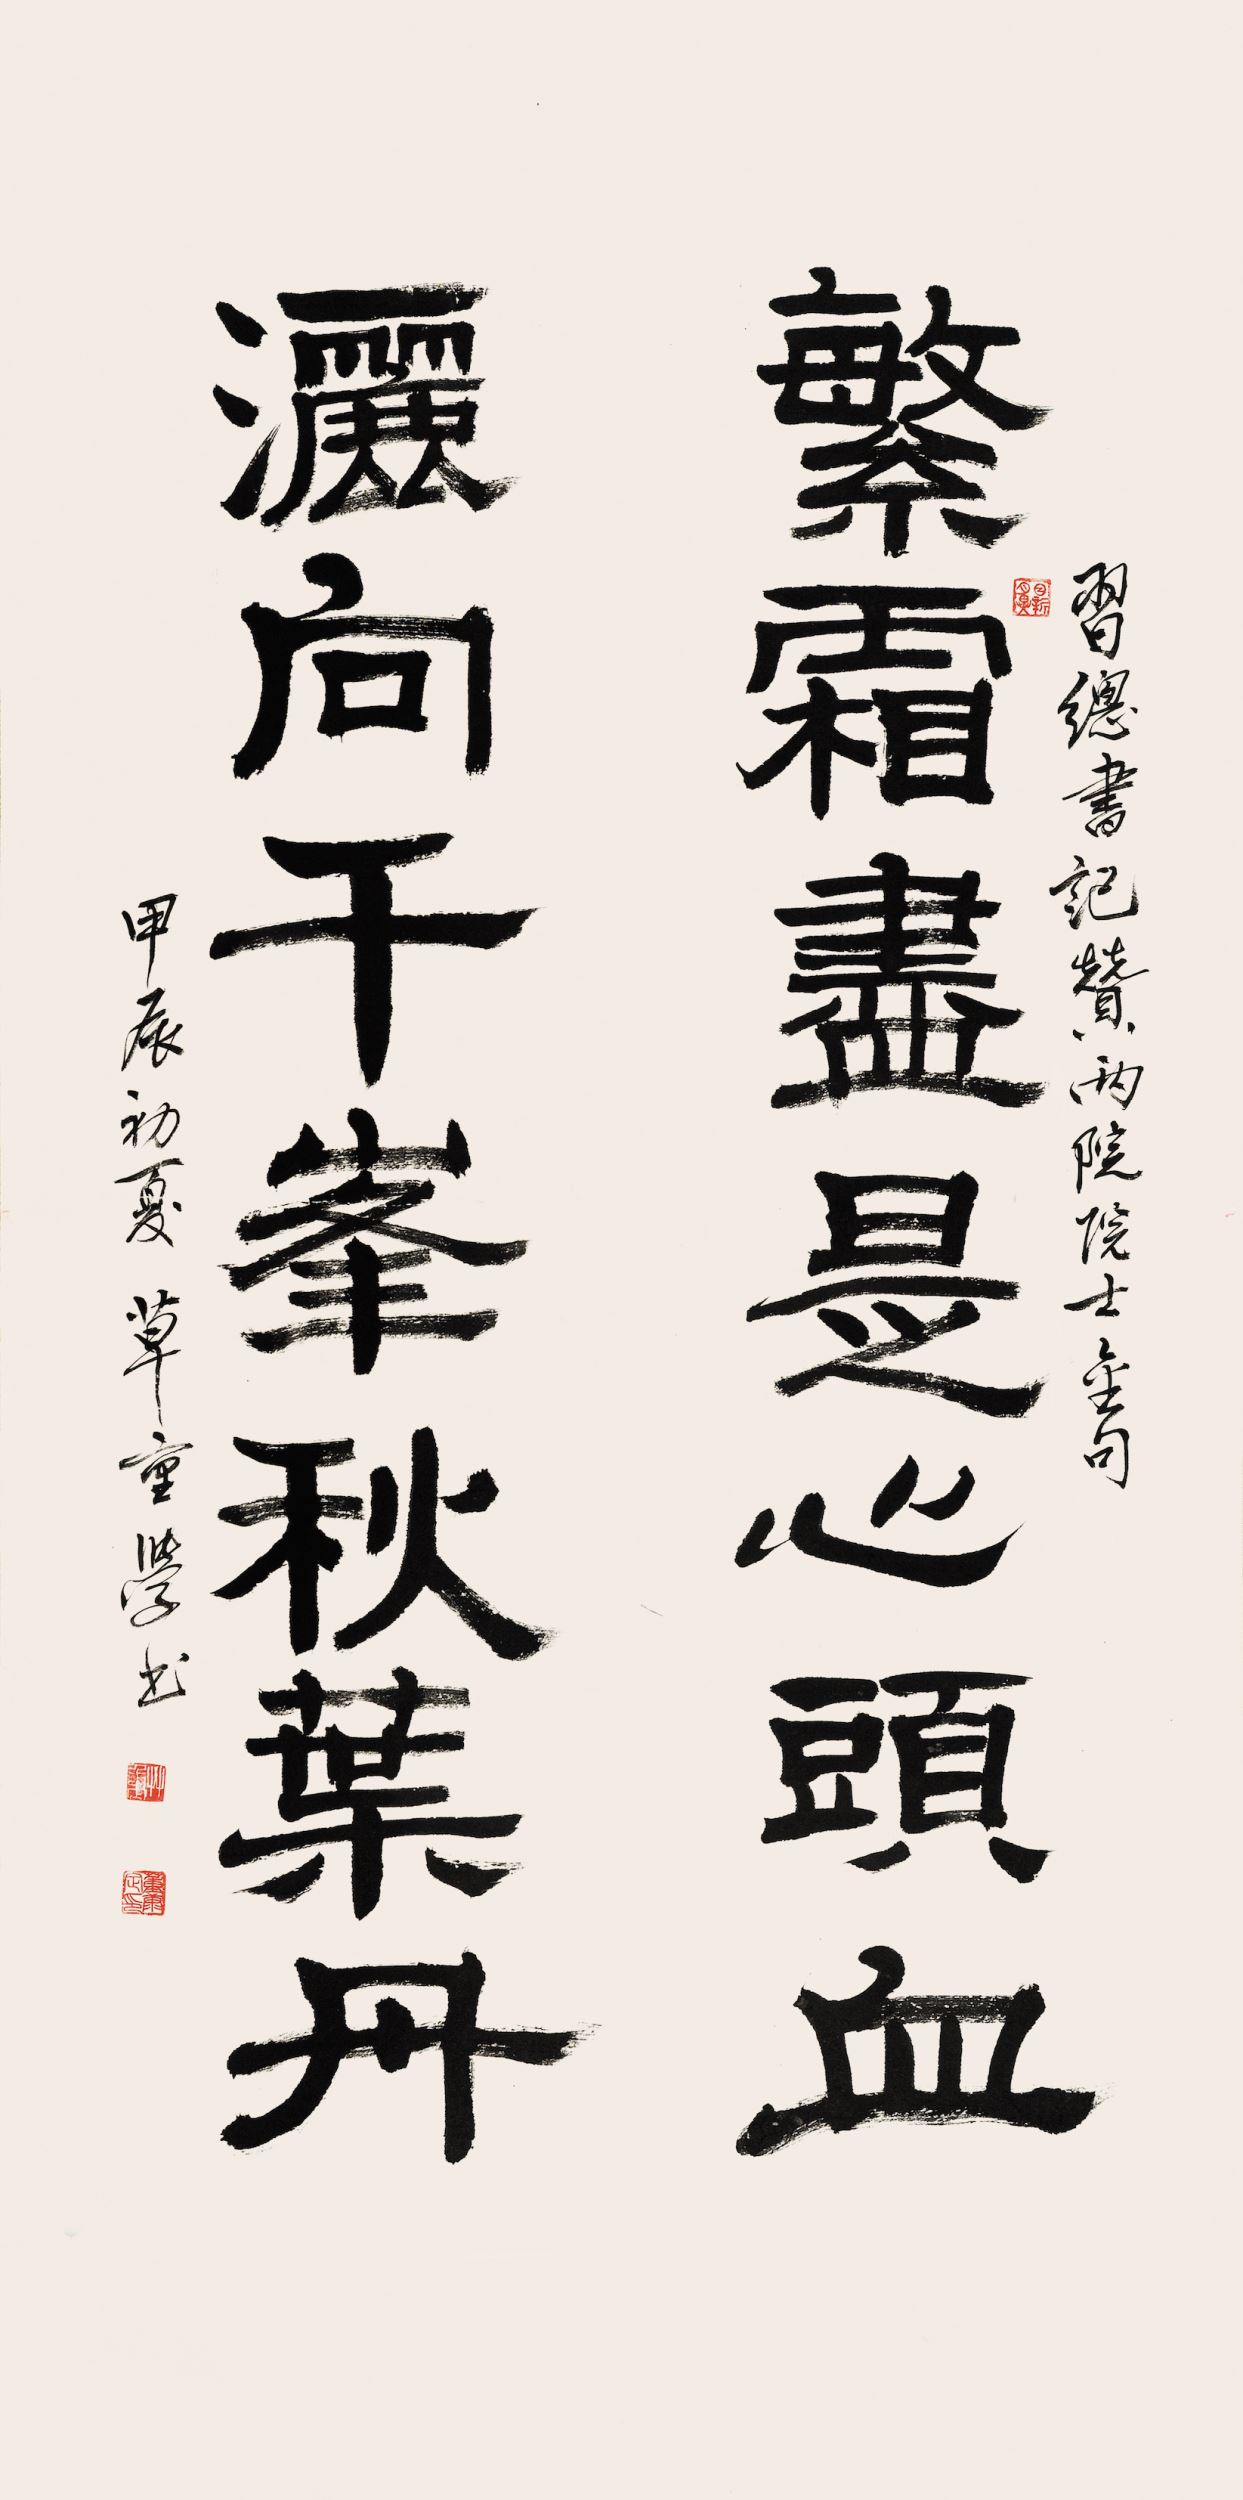 習總書記贊兩院院士金句
繁霜盡是心頭血
灑向千峯秋葉丹
甲辰初夏 草重學书